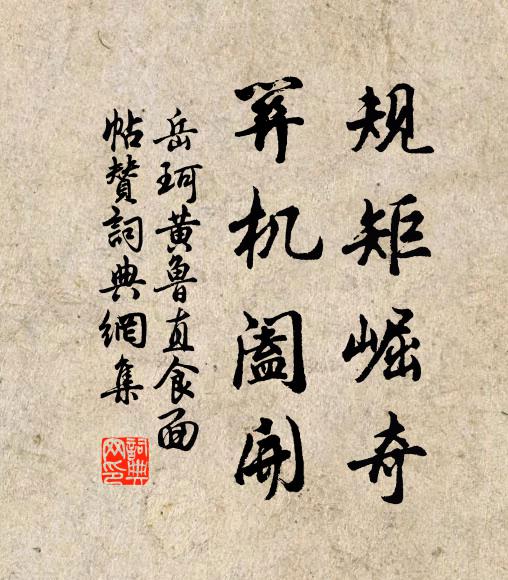 規矩崛奇
机闔開
岳珂黄魯直食面
帖贊詞典網集
詞典網印